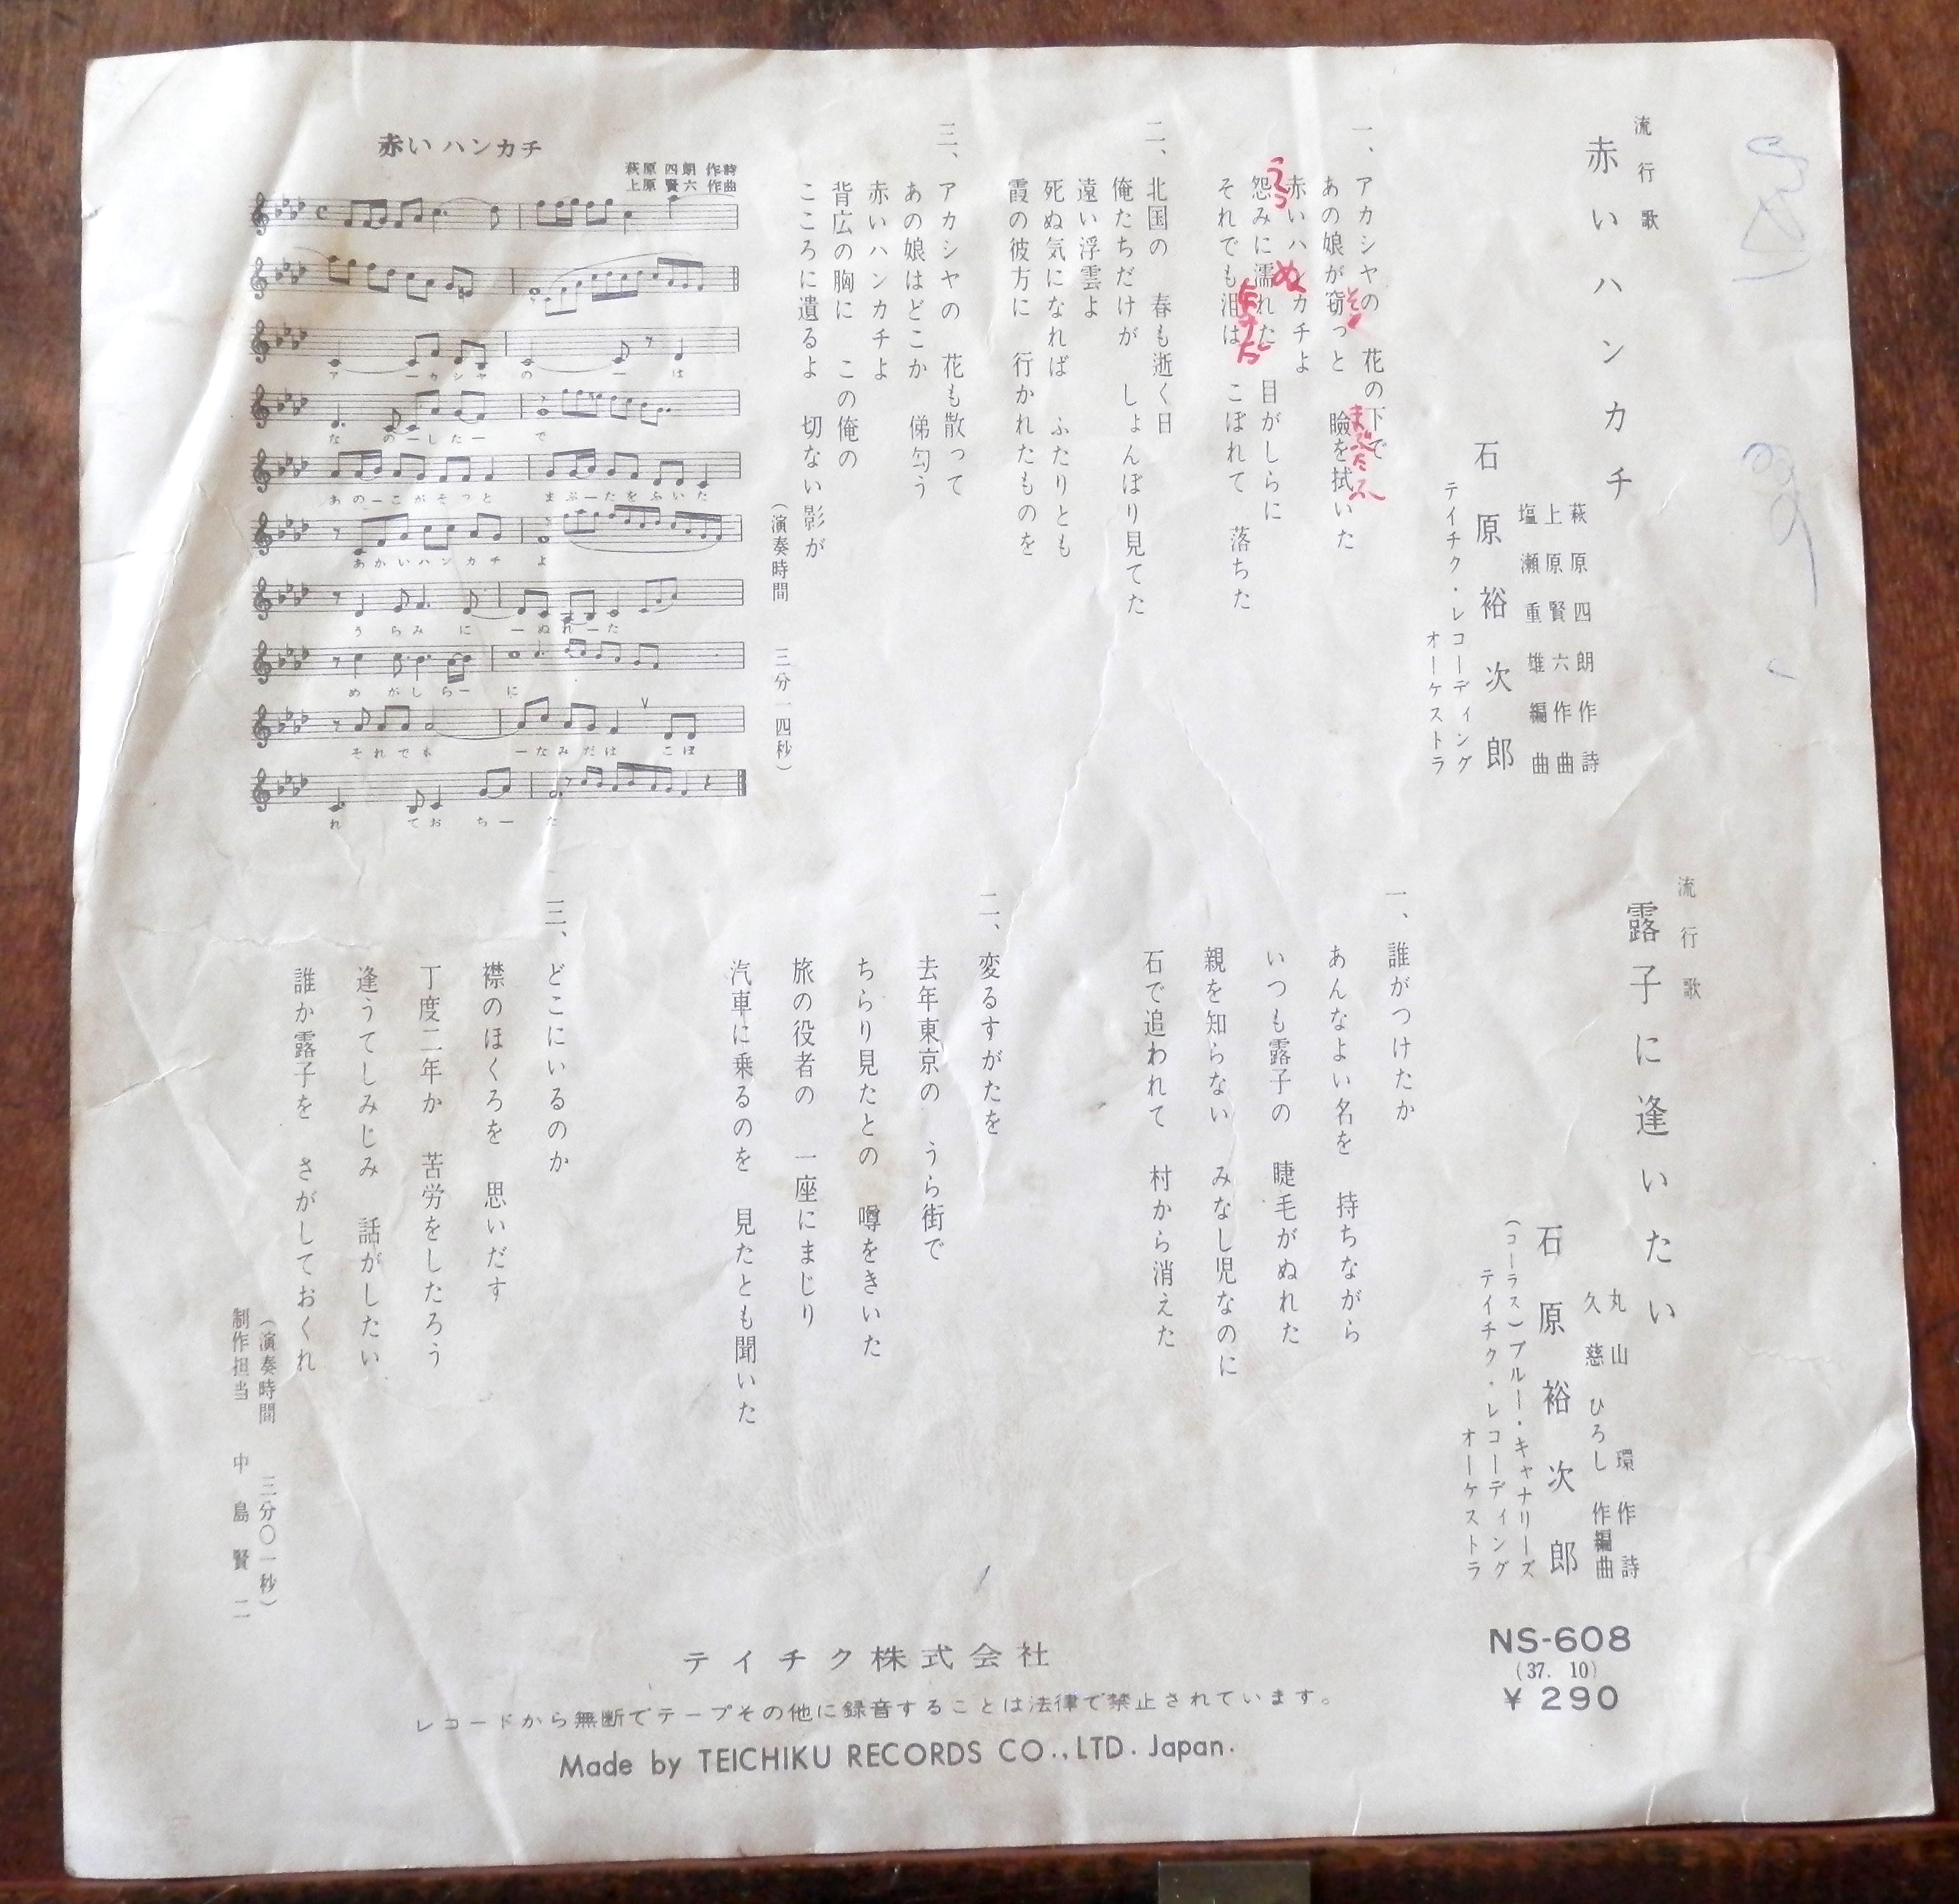 流行歌
赤いハンカチ
萩原四朗 作詩
上原賢六 作曲
塩瀬重雄 編曲
石原裕次郎
テイチク・レコーディング
オーケストラ
一、アカシヤの 花の下で
あの娘が窃っと 瞼を拭いた
そ
まぶた
ふ
赤いハンカチよ
怨みに濡れた 目がしらに
うら
ぬ
それでも泪は こぼれて 落ちた
なみだ
二、北国の 春も逝く日
俺たちだけが しょんぼり見てた
遠い浮雲よ
死ぬ気になれば ふたりとも
霞の彼方に 行かれたものを
三、アカシヤの 花も散って
あの娘はどこか 俤匂う
赤いハンカチよ
背広の胸に この俺の
こころに遺るよ 切ない影が
（演奏時間 三分一四秒）
赤いハンカチ
萩原 四朗 作詩
上原 賢六 作曲
ア ーカシヤ の ー は
な のーしたー で
あのーこがそっと まぶーたをふいた
あかいハンカチ よ
うらみ に ーぬれーた
め がしらー に
それでも ーなみだは こぼ
れ てお ちー た
流行歌
露子に逢いたい
丸山 環 作詩
久慈ひろし 作編曲
石原裕次郎
（コーラス）ブルー・キャナリーズ
テイチク・レコーディング
オーケストラ
一、誰がつけたか
あんなよい名を 持ちながら
いつも露子の 睫毛がぬれた
親を知らない みなし児なのに
石で追われて 村から消えた
二、変るすがたを
去年東京の うら街で
ちらり見たとの 噂をきいた
旅の役者の 一座にまじり
汽車に乗るのを 見たとも聞いた
三、どこにいるのか
襟のほくろを 思いだす
丁度二年か 苦労をしたろう
逢うてしみじみ 話がしたい
誰か露子を さがしておくれ
（演奏時間 三分〇一秒）
制作担当 中島賢二
NS-608
(37. 10)
¥ 290
テイチク株式会社
レコードから無断でテープその他に録音することは法律で禁止されています。
Made by TEICHIKU RECORDS CO.,LTD. Japan.